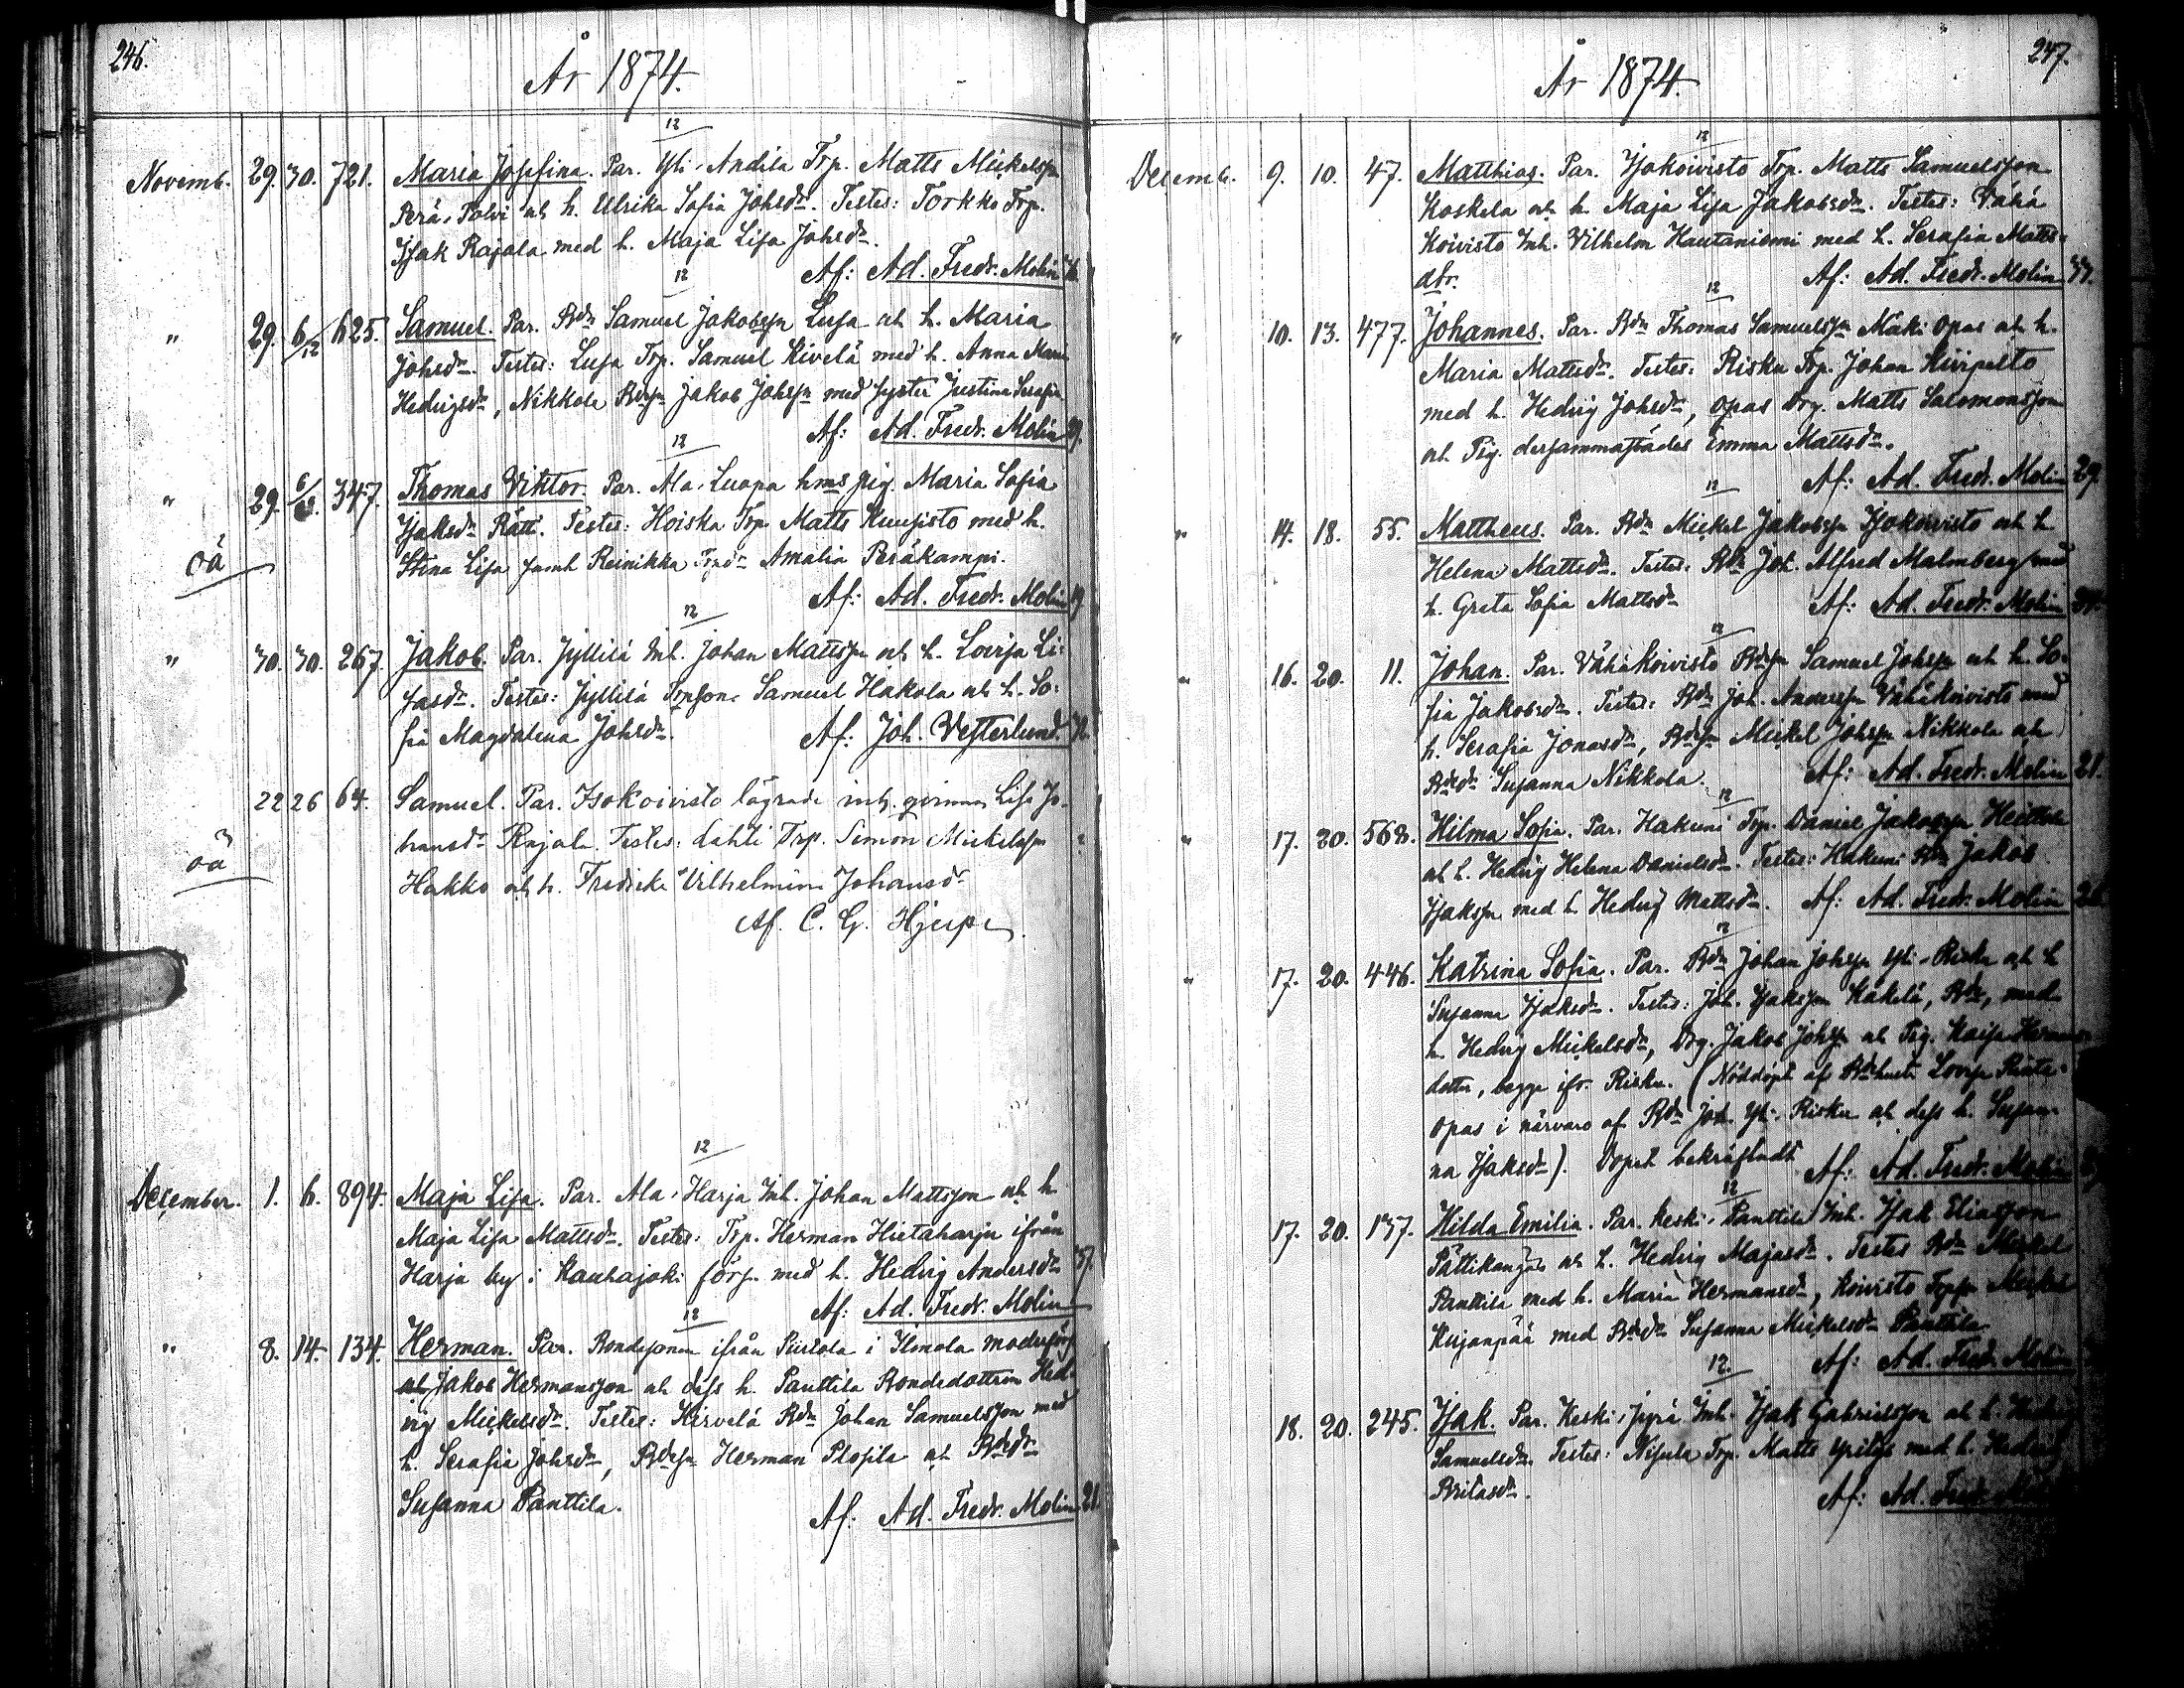 246.
År 1874.
12
Novemb. 29. 30. 721. Maria Josefina. Par. Yli-Andila Trp. Matts Mickelsson
Perä-Polvi och h. Ulrika Sofia Johsdr. Testes: Torkko Trp.
Isak Rajala med h. Maja Lisa Johsdr.
Af: Ad. Fredr. Molin
12
" 29. 6/12 625. Samuel. Par. Bdn Samuel Jakobsson Lusa och h. Maria
Johsdr. Testes: Lusa Trp. Samuel Kivelä med h. Anna Maria
Hedvigsdr, Nikkola Bdsn Jakob Johsson med syster Justina Serafia
Af: Ad. Fredr. Molin 29.
12
" 29. 6/ 347. Thomas Viktor. Par. Ala-Luopa hms pig. Maria Sofia
Isaksdr Rätti. Testes: Hoiska Trp. Matts Kuusisto med h.
oä Stina Lisa samt Reinikka Trpdr Amalia Peräkampi.
Af: Ad. Fredr. Molin 19
12
" 30. 30. 267. Jakob. Par. Jyllilä Inh. Johan Mattsson och h. Lovisa Li-
sasdr. Testes: Jyllilä Trpson Samuel Hakola och h. So-
fia Magdalena Johsdr. Af: Joh. Vesterlund.
22 26 64. Samuel. Par. Isokoivisto lägrade inh. qvinna Lisa Jo-
hansdr Rajala. Testes: Lahti Trp. Simon Mickelsson
oä Hakko och h. Fredrika Vilhelmina Johansdr
Af. C. G. Hjerpe.
12
December. 1. 6. 894. Maja Lisa. Par. Ala-Harja Inh. Johan Mattsson och h
Maja Lisa Mattsdr. Testes: Trp. Herman Hietaharju ifrån
Harja by i Kauhajoki förs. med h. Hedvig Andersdr 37.
12 Af: Ad. Fredr. Molin
" 8. 14. 134. Herman. Par. Bondesonen ifrån Piirtola i Ilmola moderförs
Jakob Hermansson och dess h. Panttila Bondedottren Hed-
vig Mickelsdr. Testes: Hirvelä Bdn Johan Samuelsson med
h. Serafia Johsdr, Bdsn Herman Plosila och Bddr
Susanna Panttila. Af: Ad. Fredr. Molin 21.
247.
År 1874.
12
Decemb. 9. 10. 47. Matthias. Par. Isokoivisto Trp. Matts Samuelsson
Koskela och h. Maja Lisa Jakobsdr. Testes: Vähä
Koivisto Inh. Vilhelm Hautaniemi med h. Serafia Matts-
dtr. 12 Af: Ad. Fredr. Molin 33.
" 10. 13. 477. Johannes. Par. Bdn Thomas Samuelsson Mäki-Opas och h.
Maria Mattsdr. Testes: Risku Trp. Johan Kivipelto
med h. Hedvig Johsdr, Opas Drg. Matts Salomonsson
och Pig. dersammastädes Emma Mattsdr.
12 Af: Ad. Fredr. Molin 29.
" 14. 18. 55. Mattheus. Par. Bdn Mickel Jakobsson Isokoivisto och h
Helena Mattsdr. Testes: Bdn Joh. Alfred Malmberg med
h. Greta Sofia Mattsdr Af: Ad. Fredr. Molin
12
" 16. 20. 11. Johan. Par. Vähäkoivisto Bdsn Samuel Johsson och h. So-
fia Jakobsdr. Testes: Bdn Joh. Andersson Vähäkoivisto med
h. Serafia Jonasdr, Bdsn Mickel Johsson Nikkola och
Bddr Susanna Nikkola. Af: Ad. Fredr. Molin 21.
12
" 17. 20. 568. Hilma Sofia. Par. Hakuni Trp. Daniel Jakobsson
och h. Hedvig Helena Danielsdr. Testes: Hakuni Bdn Jakob
Isaksson med h Hedvig Mattsdr. Af: Ad. Fredr. Molin
12
" 17. 20. 446. Katrina Sofia. Par. Bdn Johan Johsson Yli-Risku och h
Susanna Isaksdr. Testes: Joh. Isaksson Kakelä, Bdn, med
h. Hedvig Mickelsdr, Drg. Jakob Johsson och Pig. Kaisa
dotter, begge ifr. Risku. (Nöddöpt af Bdehustr Lovisa
Opas i närvaro af Bdn Joh. Yli-Risku och dess h. Susan-
na Isaksdr). Dopet bekräftadt Af: Ad. Fredr. Molin
12
17. 20. 137. Hilda Emilia. Par. Keski-Panttila Inh. Isak Eliasson
Pättikangas och h. Hedvig Majasdr. Testes Bdn Mickel
Panttila med h. Maria Hermansdr, Koivisto Trpsn Mickel
Kujanpää med Bddr Susanna Mickelsdr Panttila
12 Af: Ad. Fredr. Molin
18. 20. 245. Isak. Par. Keski-Jyrä Inh. Isak Gabrielsson och h.
Samuelsdr. Testes: Nisula Trp. Matts med h. Hedvig
Britasdr. Af: Ad. Fredr.